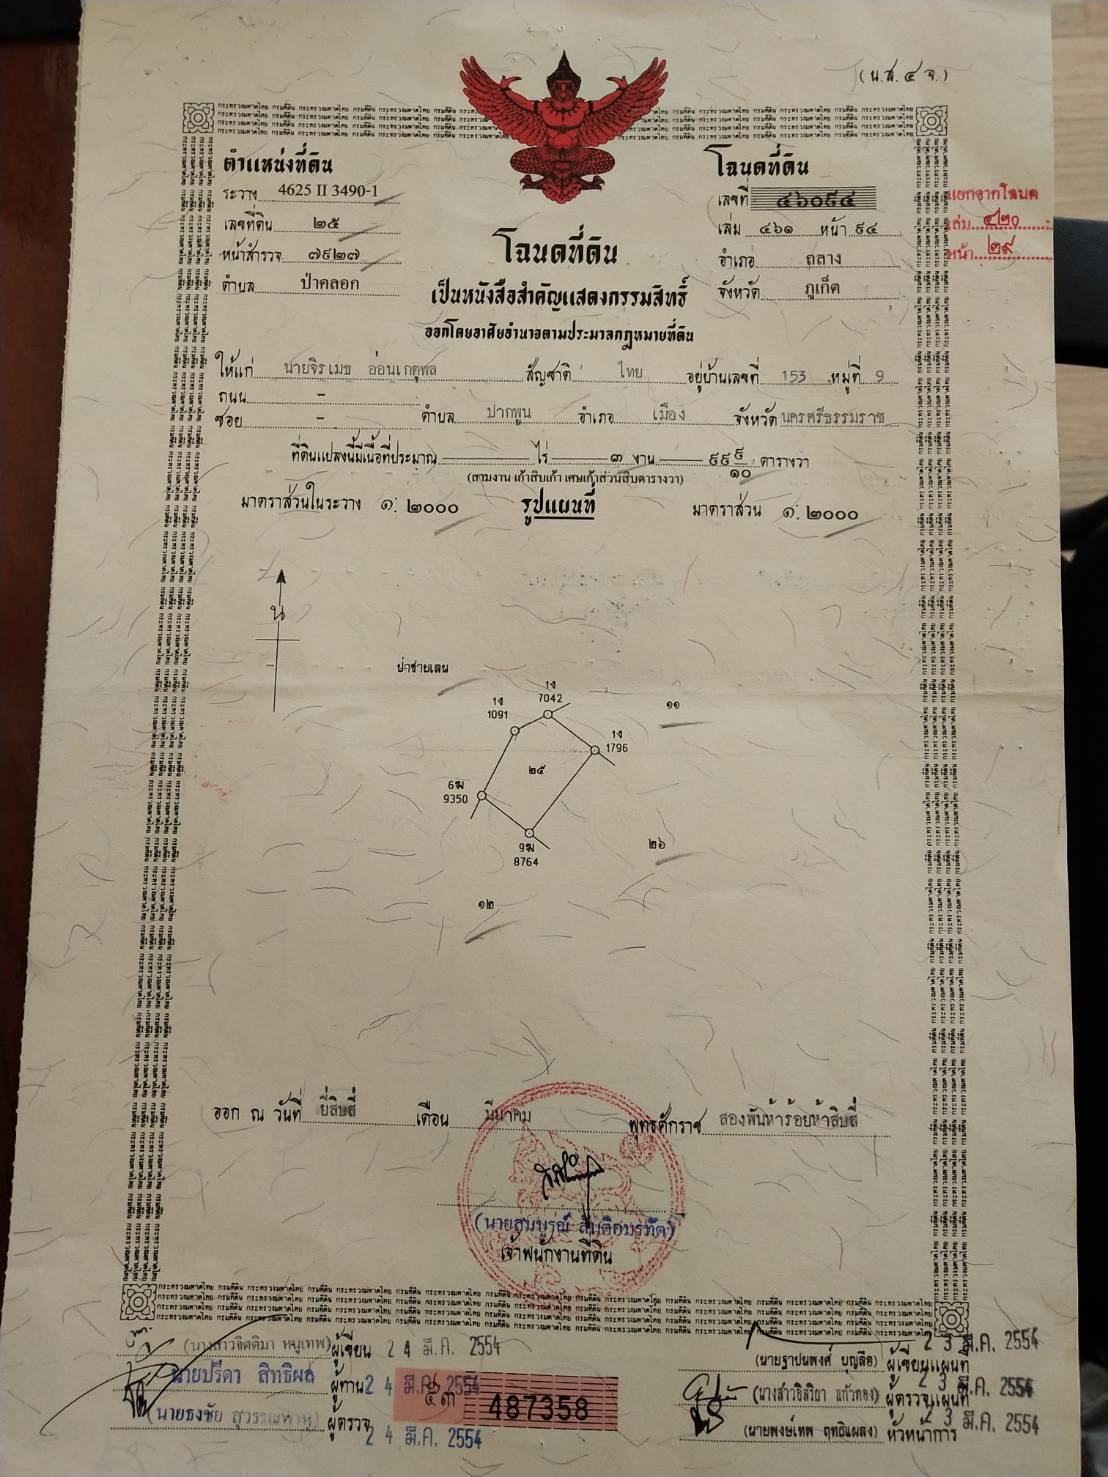 (น.ส. ๔ จ.)
ตำแหน่งที่ดิน
ระวาง 4625 II 3490-1
เลขที่ดิน ๒๕
หน้าสำรวจ ๗๙๒๗
ตำบล ป่าคลอก
โฉนดที่ดิน
เลขที่ ๔๖๐๙๔
เล่ม ๔๖๑ หน้า ๙๔
อำเภอ ถลาง
จังหวัด ภูเก็ต
แยกจากโฉนด
เล่ม ๔๒๐
หน้า ๒๙
โฉนดที่ดิน
เป็นหนังสือสำคัญแสดงกรรมสิทธิ์
ออกโดยอาศัยอำนาจตามประมวลกฎหมายที่ดิน
ให้แก่ นายจิรเมธ อ่อนเกตุพล สัญชาติ ไทย อยู่บ้านเลขที่ 153 หมู่ที่ 9
ถนน -
ซอย - ตำบล ปากพูน อำเภอ เมือง จังหวัด นครศรีธรรมราช
ที่ดินแปลงนี้มีเนื้อที่ประมาณ ไร่ ๓ งาน ๙๙ ๙/๑๐ ตารางวา
(สามงาน เก้าสิบเก้า เศษเก้าส่วนสิบตารางวา)
มาตราส่วนในระวาง ๑: ๒๐๐๐ รูปแผนที่ มาตราส่วน ๑: ๒๐๐๐
น
ป่าชายเลน
1ง
7042
1ง
1091
๑๑
1ง
1796
๒๕
6ฆ
9350
9ฆ
8764
๒๖
๑๒
ออก ณ วันที่ ยี่สิบสี่ เดือน มีนาคม พุทธศักราช สองพันห้าร้อยห้าสิบสี่
เจ้าพนักงานที่ดิน
ผู้เขียน 24 มี.ค. 2554
นายปรีดา สิทธิผล ผู้ทาน 24 มี.ค. 2554
ผู้ตรวจ 24 มี.ค. 2554
487358
23 มี.ค. 2554
(นายฐาปนพงศ์ บุญลือ) ผู้เขียนแผนที่
23 มี.ค. 2554
ผู้ตรวจแผนที่
23 มี.ค. 2554
(นายพงษ์เทพ ฤทธิแผลง) หัวหน้าการ